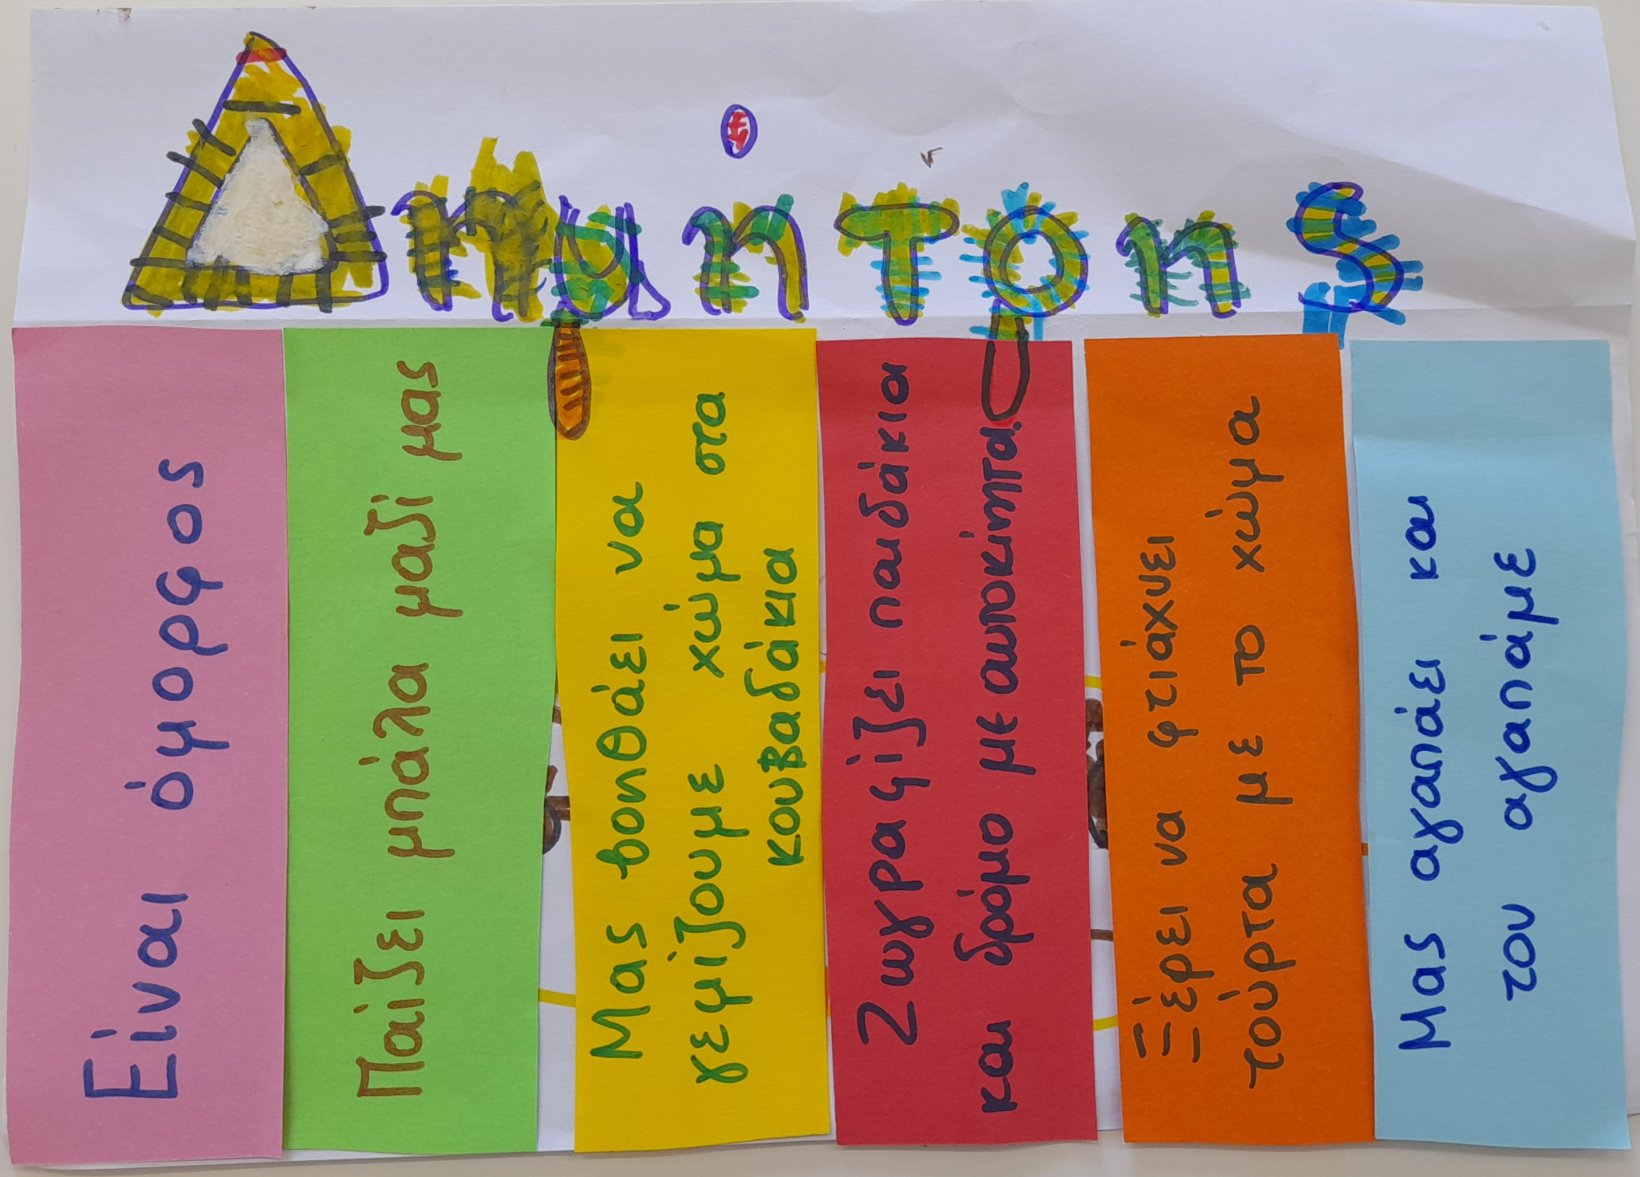 Δημήτρης
Είναι όμορφος
Παίζει μπάλα μαζί μας
Μας βοηθάει να
γεμίζουμε χώμα στα
κουβαδάκια
Ζωγραφίζει παιδάκια
και δρόμο με αυτοκίνητα.
Ξέρει να φτιάχνει
τούρτα με το χώμα
Μας αγαπάει και
τον αγαπάμε